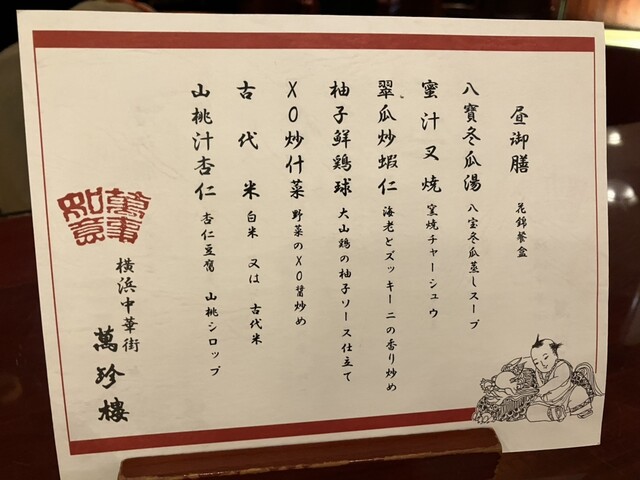 昼御膳 花錦餐盒
八寶冬瓜湯 八宝冬瓜蒸しスープ
蜜汁叉焼 窯焼チャーシュウ
翠瓜炒蝦仁 海老とズッキーニの香り炒め
柚子鮮鶏球 大山鶏の柚子ソース仕立て
XO炒什菜 野菜のXO醤炒め
古代米 白米 又は 古代米
山桃汁杏仁 杏仁豆腐 山桃シロップ
萬事如意
横浜中華街
萬珍樓